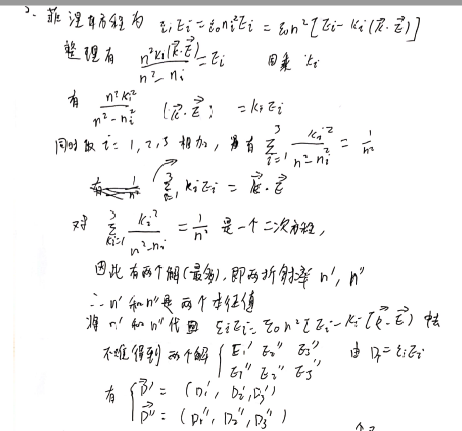 2. 菲涅耳方程为 εᵢEᵢ=ε₀nᵢ²Eᵢ = ε₀n²[Eᵢ-kᵢ(k⃗·E⃗)]
整理有 n²kᵢ(k⃗·E⃗)/(n²-nᵢ²) = Eᵢ 同乘 kᵢ
有 n²kᵢ²/(n²-nᵢ²) (k⃗·E⃗) = kᵢEᵢ
同时取 i=1,2,3 相加, 有 ∑ᵢ₌₁³ kᵢ²/(n²-nᵢ²) = 1/n²
∑ᵢ₌₁³ kᵢEᵢ = k⃗·E⃗
对 ∑ᵢ₌₁³ kᵢ²/(n²-nᵢ) = 1/n² 是一个二次方程,
因此有两个解(最多),即两折射率 n', n"
∴ n' 和 n" 是两个本征值
将 n' 和 n" 代回 εᵢEᵢ=ε₀n²[Eᵢ-kᵢ(k⃗·E⃗)
不难得到两个解 { E₁' E₂' E₃' 由 Dᵢ=εᵢEᵢ
E₁" E₂" E₃"
有 { D⃗' = (D₁', D₂', D₃')
D⃗" = (D₁", D₂", D₃")